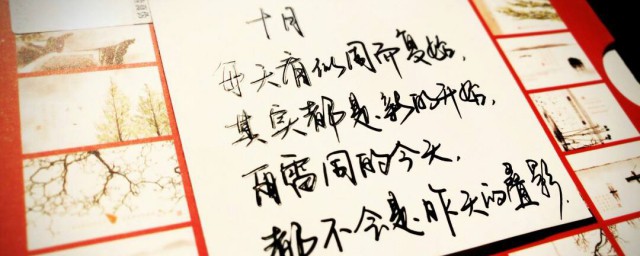 十月
每天看似周而复始，
其实都是新的开始，
再雷同的今天，
都不会是昨天的叠影.